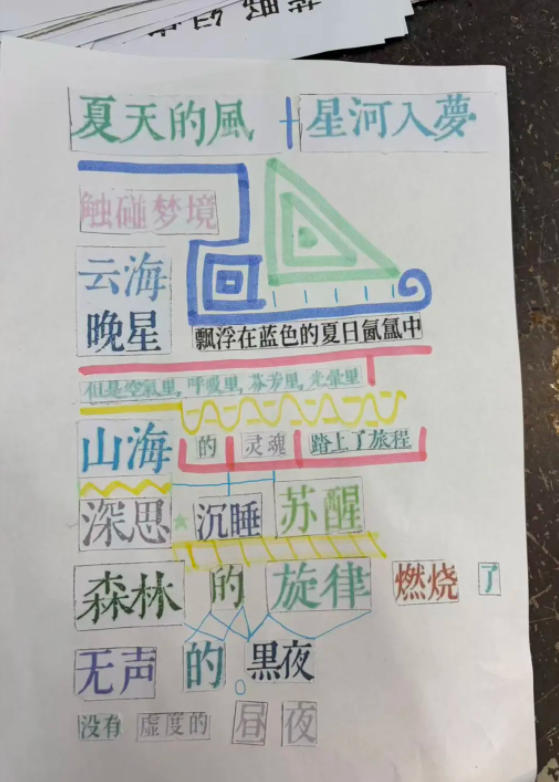 夏天的風 星河入夢
触碰梦境
云海
晚星
飘浮在蓝色的夏日氤氲中
但是空氣里, 呼吸里, 芬芳里, 光暈里
山海 的 灵魂 踏上了旅程
深思 沉睡 苏醒
森林 的 旋律 燃烧 了
无声 的 黑夜
没有 虚度的 昼 夜